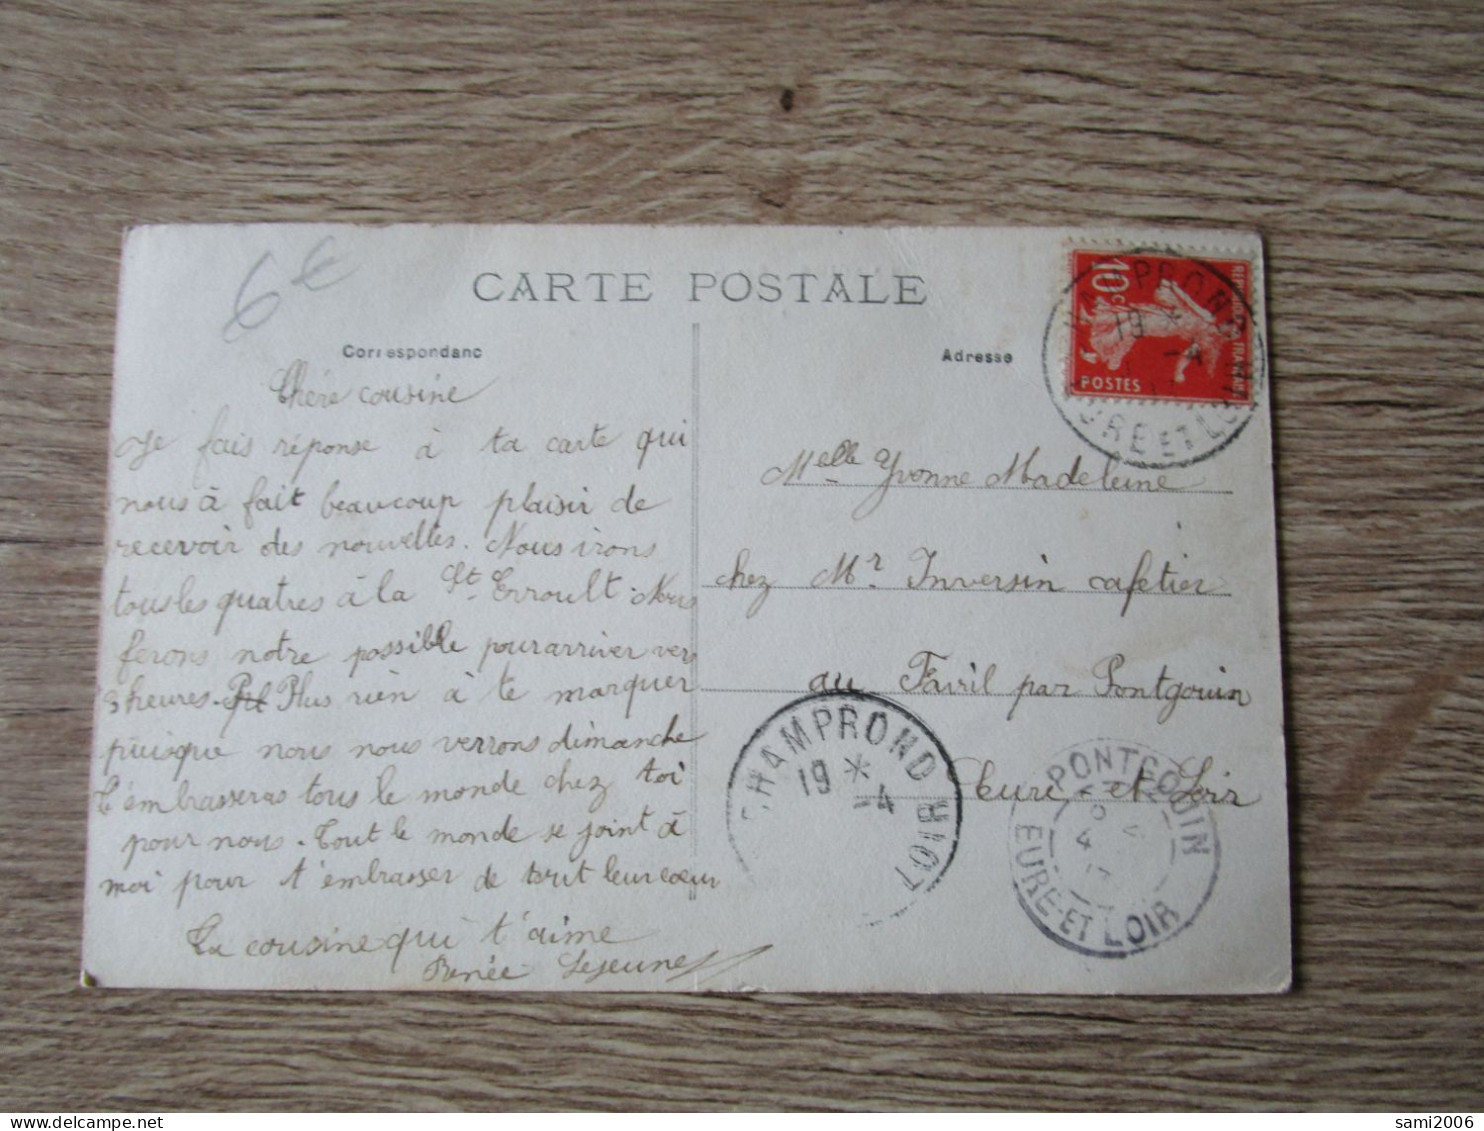 6€
CARTE POSTALE
Correspondanc
Adresse
Chère cousine
Je fais réponse à ta carte qui
nous à fait beaucoup plaisir de
recevoir des nouvelles. Nous irons
tous les quatres à la St. Erroult. Nous
ferons notre possible pour arriver vers
3 heures. Plus rien à te marquer
puisque nous nous verrons dimanche
T'embrasseras tous le monde chez toi
pour nous. Tout le monde se joint à
moi pour t'embrasser de tout leur cœur
Ta cousine qui t'aime
Renée Lejeune
10c
REPUBLIQUE FRANÇAISE
POSTES
CHAMPROND
19 * -4
EURE ET LOIR
Melle Yvonne Madeleine
chez Mr Inversin cafetier
au Favril par Pontgouin
Eure et Loir
CHAMPROND
19 * -4
LOIR
PONTGOUIN
EURE-ET LOIR
sami2006